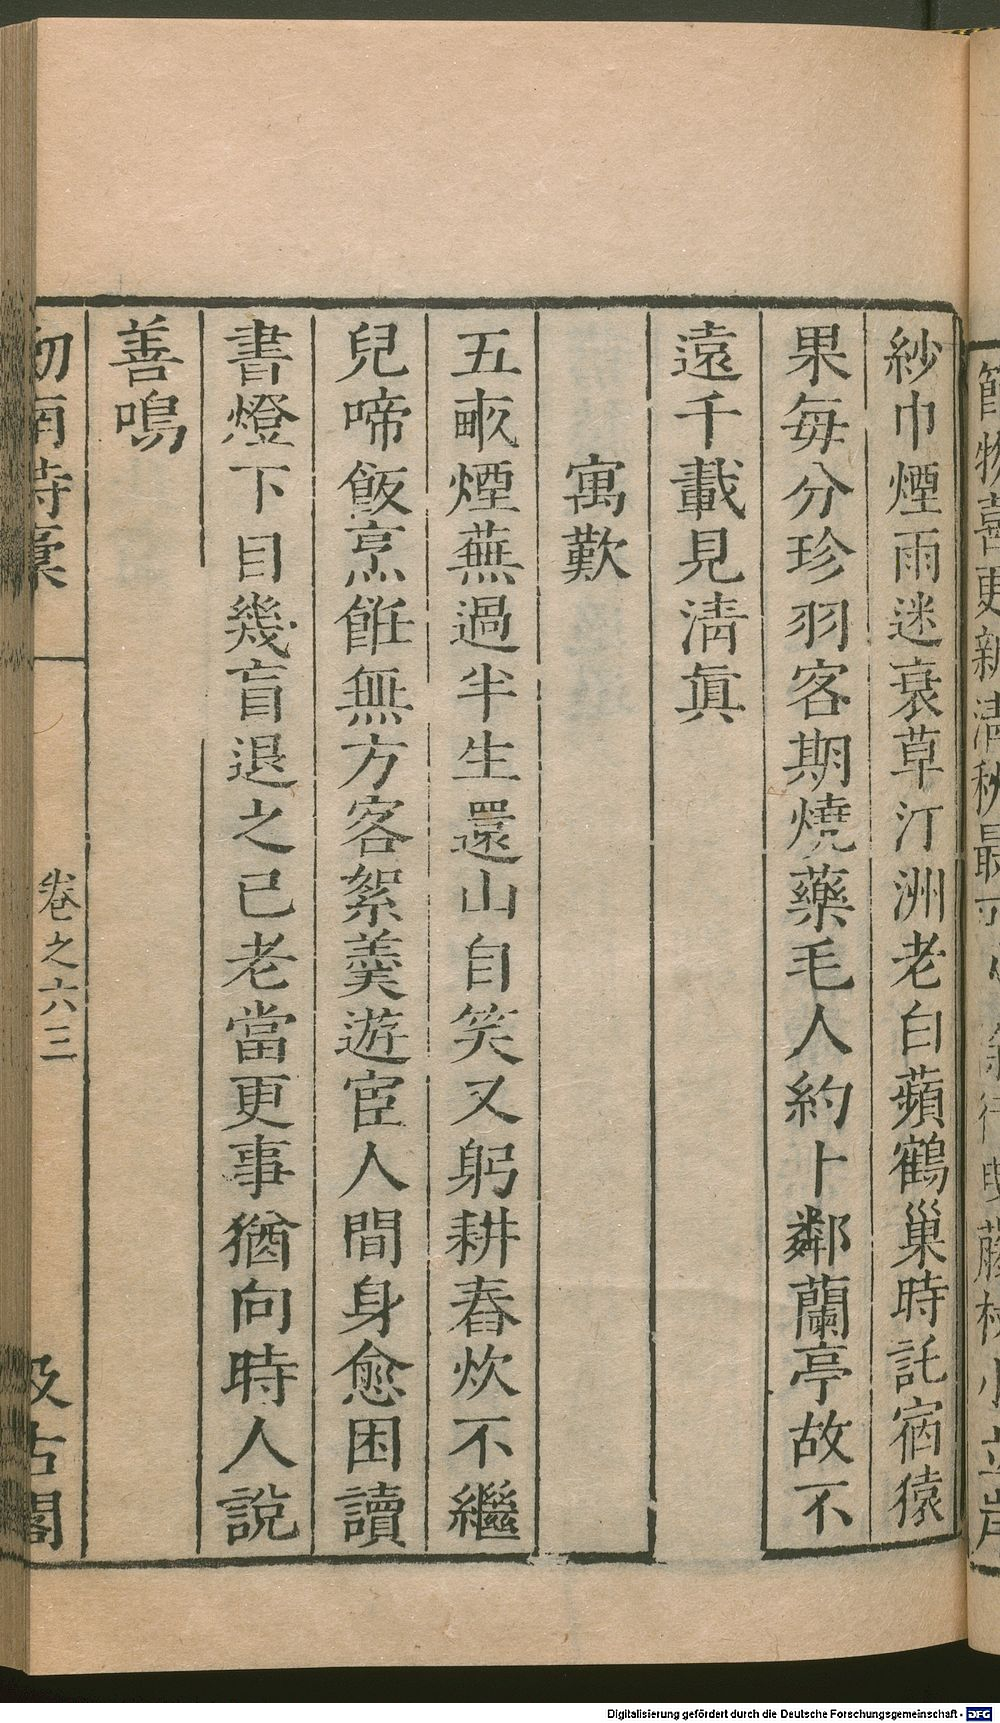 紗巾煙雨迷衰草汀洲老白蘋鶴巢時託宿猿
果每分珍羽客期燒藥毛人約卜鄰蘭亭故不
遠千載見淸眞
寓歎
五畝煙蕪過半生還山自笑又躬耕舂炊不繼
兒啼飯烹飪無方客絮羹遊宦人間身愈困讀
書燈下目幾盲退之已老當更事猶向時人說
善鳴
劒南詩稾
卷之六
三
汲古閣
Digitalisierung gefördert durch die Deutsche Forschungsgemeinschaft - DFG